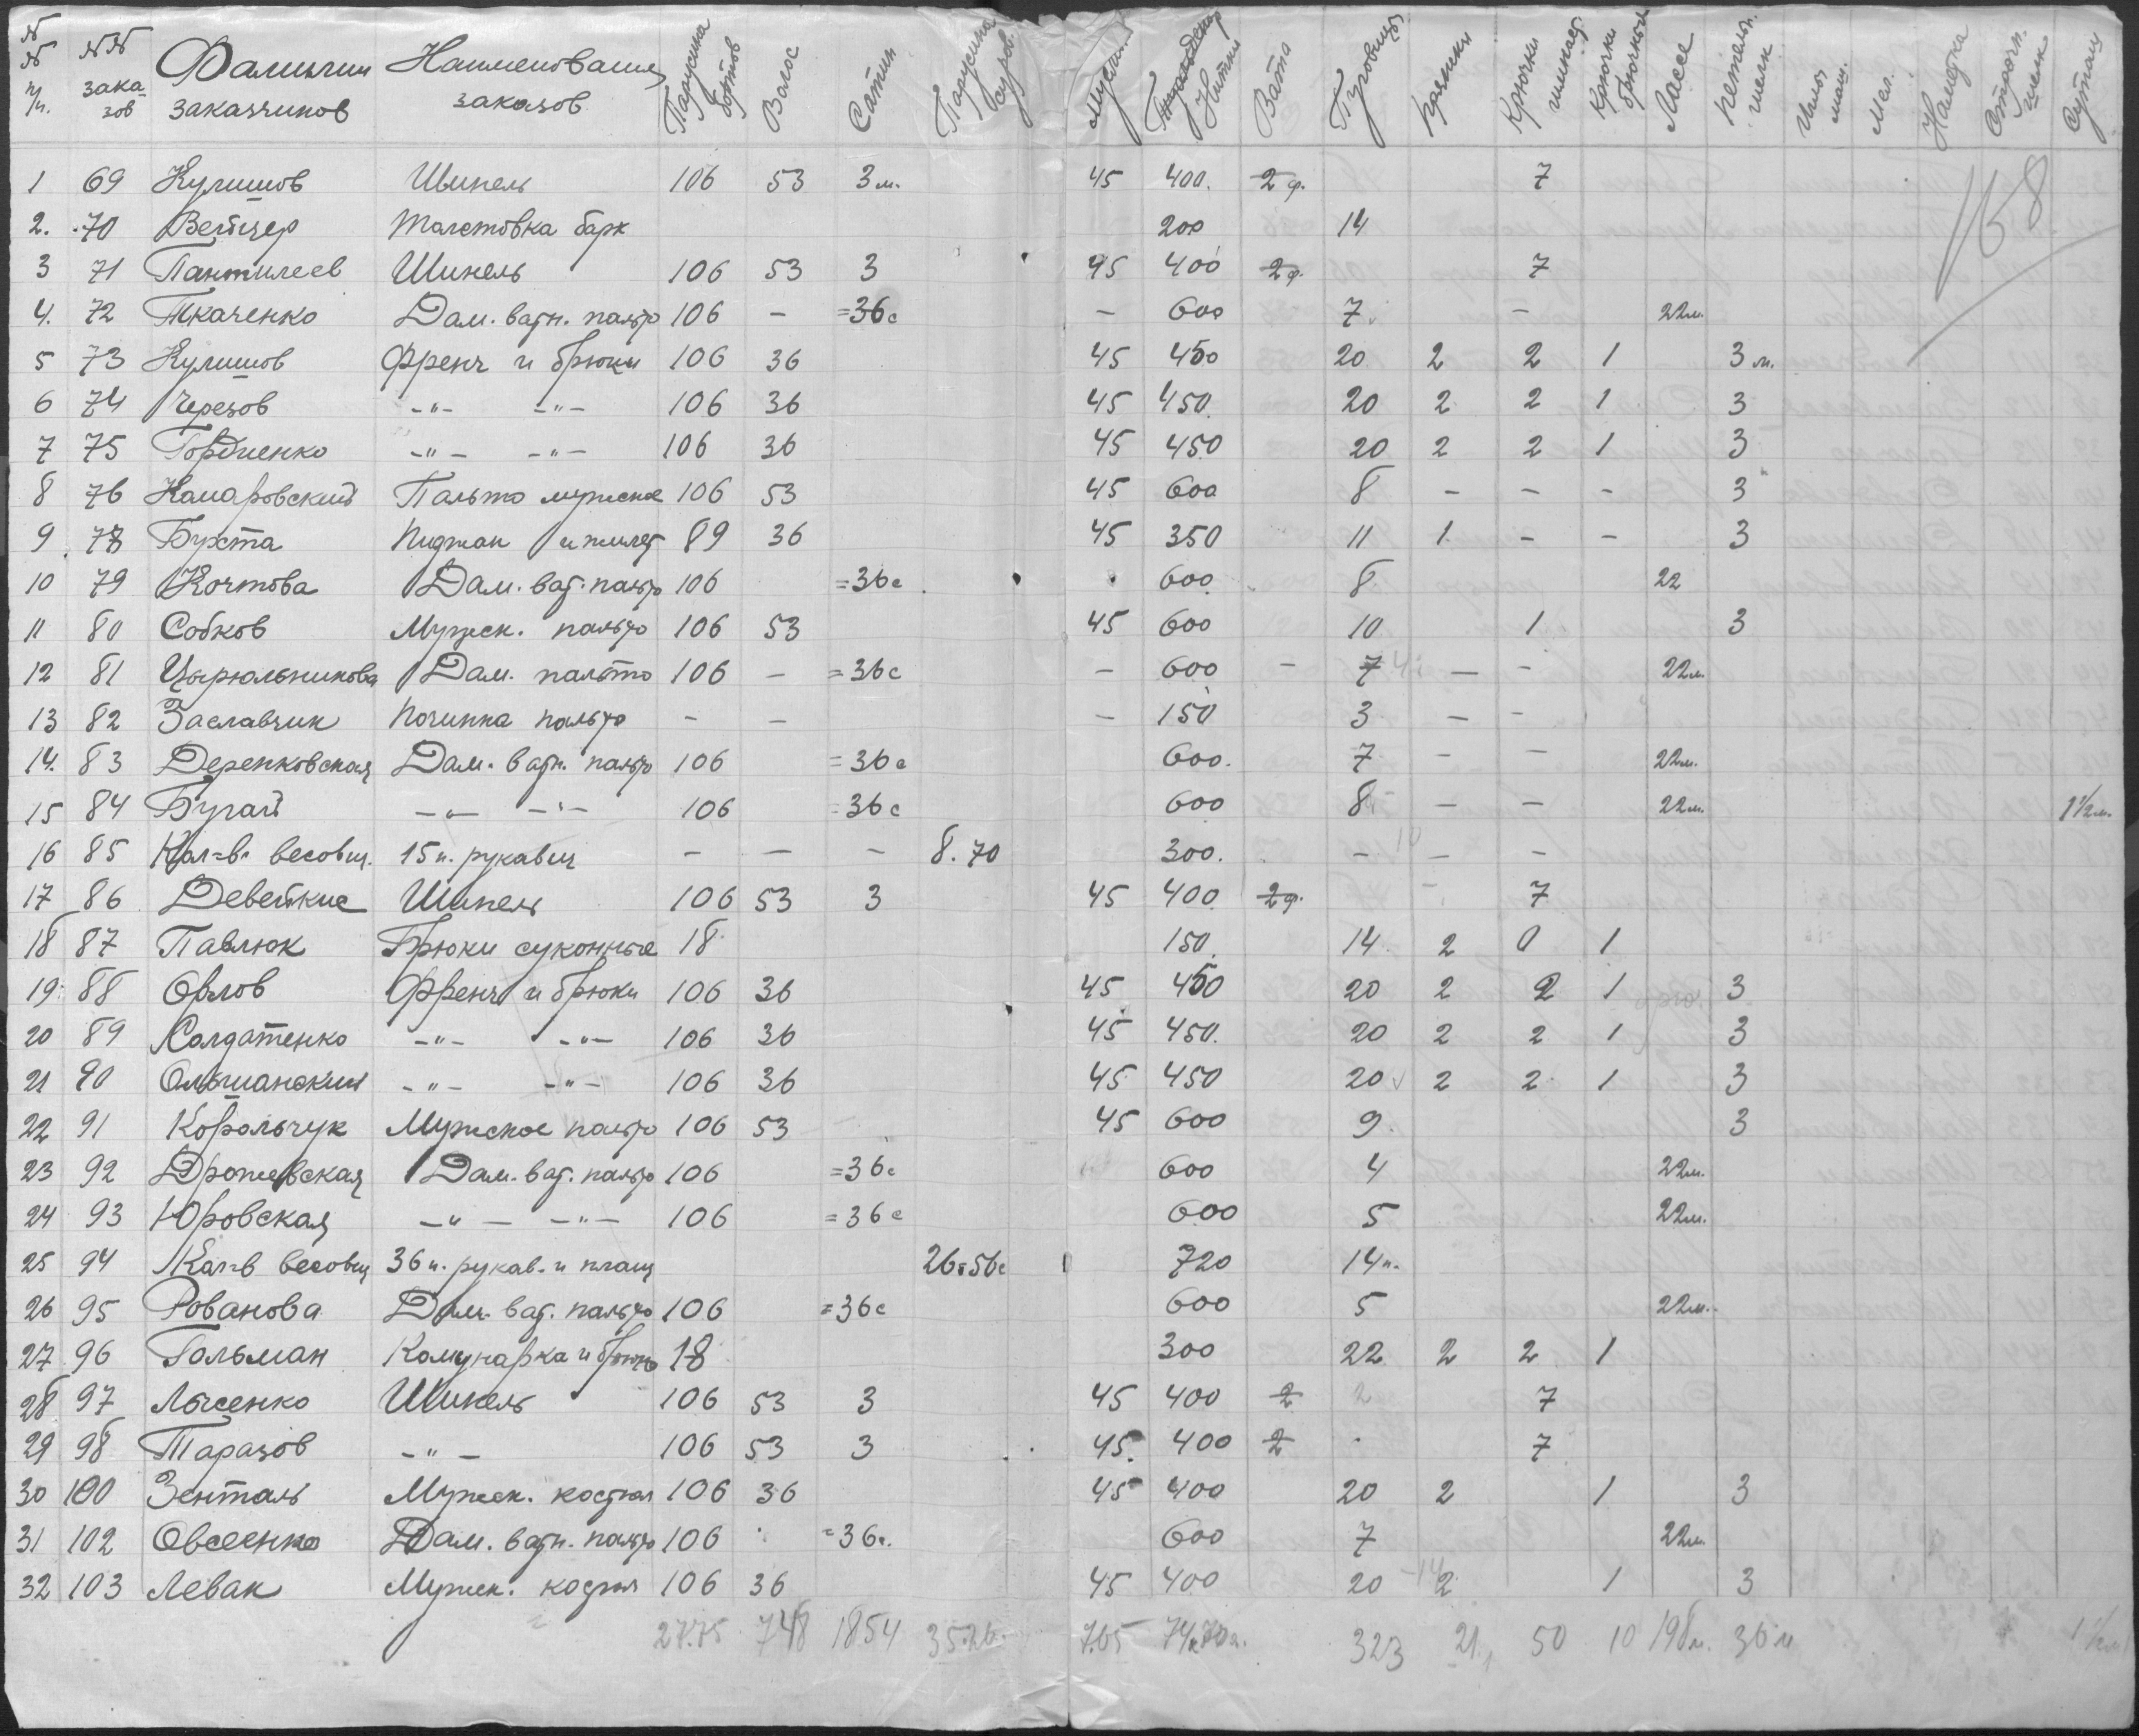 №№ п/п. №№ заказов Фамилии заказчиков Наименование заказов Парусина бортов Волос Сатин Парусина суров. Муслин Нитки Вата Пуговицы Пряжки Крючки шинел. Крючки брючные Лассе Петельн. шелк Иголки маш. Мел. Наметка Строчн. шелк Сутаж
168
1 69 Кулишов Шинель 106 53 3 м. 45 400. 2 ф. 7
2. 70 Вейцер Толстовка барх 200 14
3 71 Пантилеев Шинель 106 53 3 45 400 2 ф. 7
4. 72 Ткаченко Дам. ватн. пальто 106 – =36с – 600 7 – 22м.
5 73 Кулишов Френч и брюки 106 36 45 450 20 2 2 1 3 м.
6 74 Черезов -"- -"- 106 36 45 450. 20 2 2 1 3
7 75 Гордиенко -"- -"- 106 36 45 450 20 2 2 1 3
8 76 Комаровский Пальто мужское 106 53 45 600 8 – – – 3
9 78 Бухта Пиджак и жилет 89 36 45 350 11 1 – – 3
10 79 Кочтова Дам. ват. пальто 106 =36с 600 8 22
11 80 Собков Мужск. пальто 106 53 45 600 10 1 3
12 81 Цырюльникова Дам. пальто 106 – =36с – 600 – 7 4 – – 22м.
13 82 Заславчик Починка пальто – – – 150 3 – –
14. 83 Деренковская Дам. ватн. пальто 106 =36с 600. 7 – – 22м.
15 84 Бугай -"- -"- 106 =36с 600 8 – – 22м. 1½м.
16 85 Кол-в весовщ. 15 п. рукавиц – – – 8.70 300. – 10 – –
17 86 Девейкис Шинель 106 53 3 45 400 2ф. – 7
18 87 Павлюк Брюки суконные 18 150. 14 2 0 1
19. 88 Орлов Френч и брюки 106 36 45 450 20 2 2 1 3
20 89 Солдатенко -"- -"- 106 36 45 450. 20 2 2 1 3
21 90 Ольшанский -"- -"- 106 36 45 450 20 2 2 1 3
22 91 Корольчук Мужское пальто 106 53 45 600 9. 3
23 92 Дрошевская Дам. ват. пальто 106 =36с 600 4 22м.
24 93 Юровская -"- -"- 106 =36с 600 5 22м.
25 94 Кол-в весовщ 36 п. рукав. и плащ 26=56с 720 14п.
26 95 Рованова Дам. ват. пальто 106 =36с 600 5 22м.
27 96 Гольман Комунарка и брюки 18 300 22 2 2 1
28 97 Лысенко Шинель 106 53 3 45 400 2 2 7
29 98 Таразов -"- 106 53 3 45. 400 2 7
30 100 Зенталь Мужск. костюм 106 36 45 400 20 2 1 3
31 102 Овсеенко Дам. ватн. пальто 106 =36с. 600 7 22м.
32 103 Левак Мужск. костюм 106 36 45 400 20 14 2 1 3
27.75 748 1854 35.26. 7.65 323 21, 50 10 198м. 36м 1½м